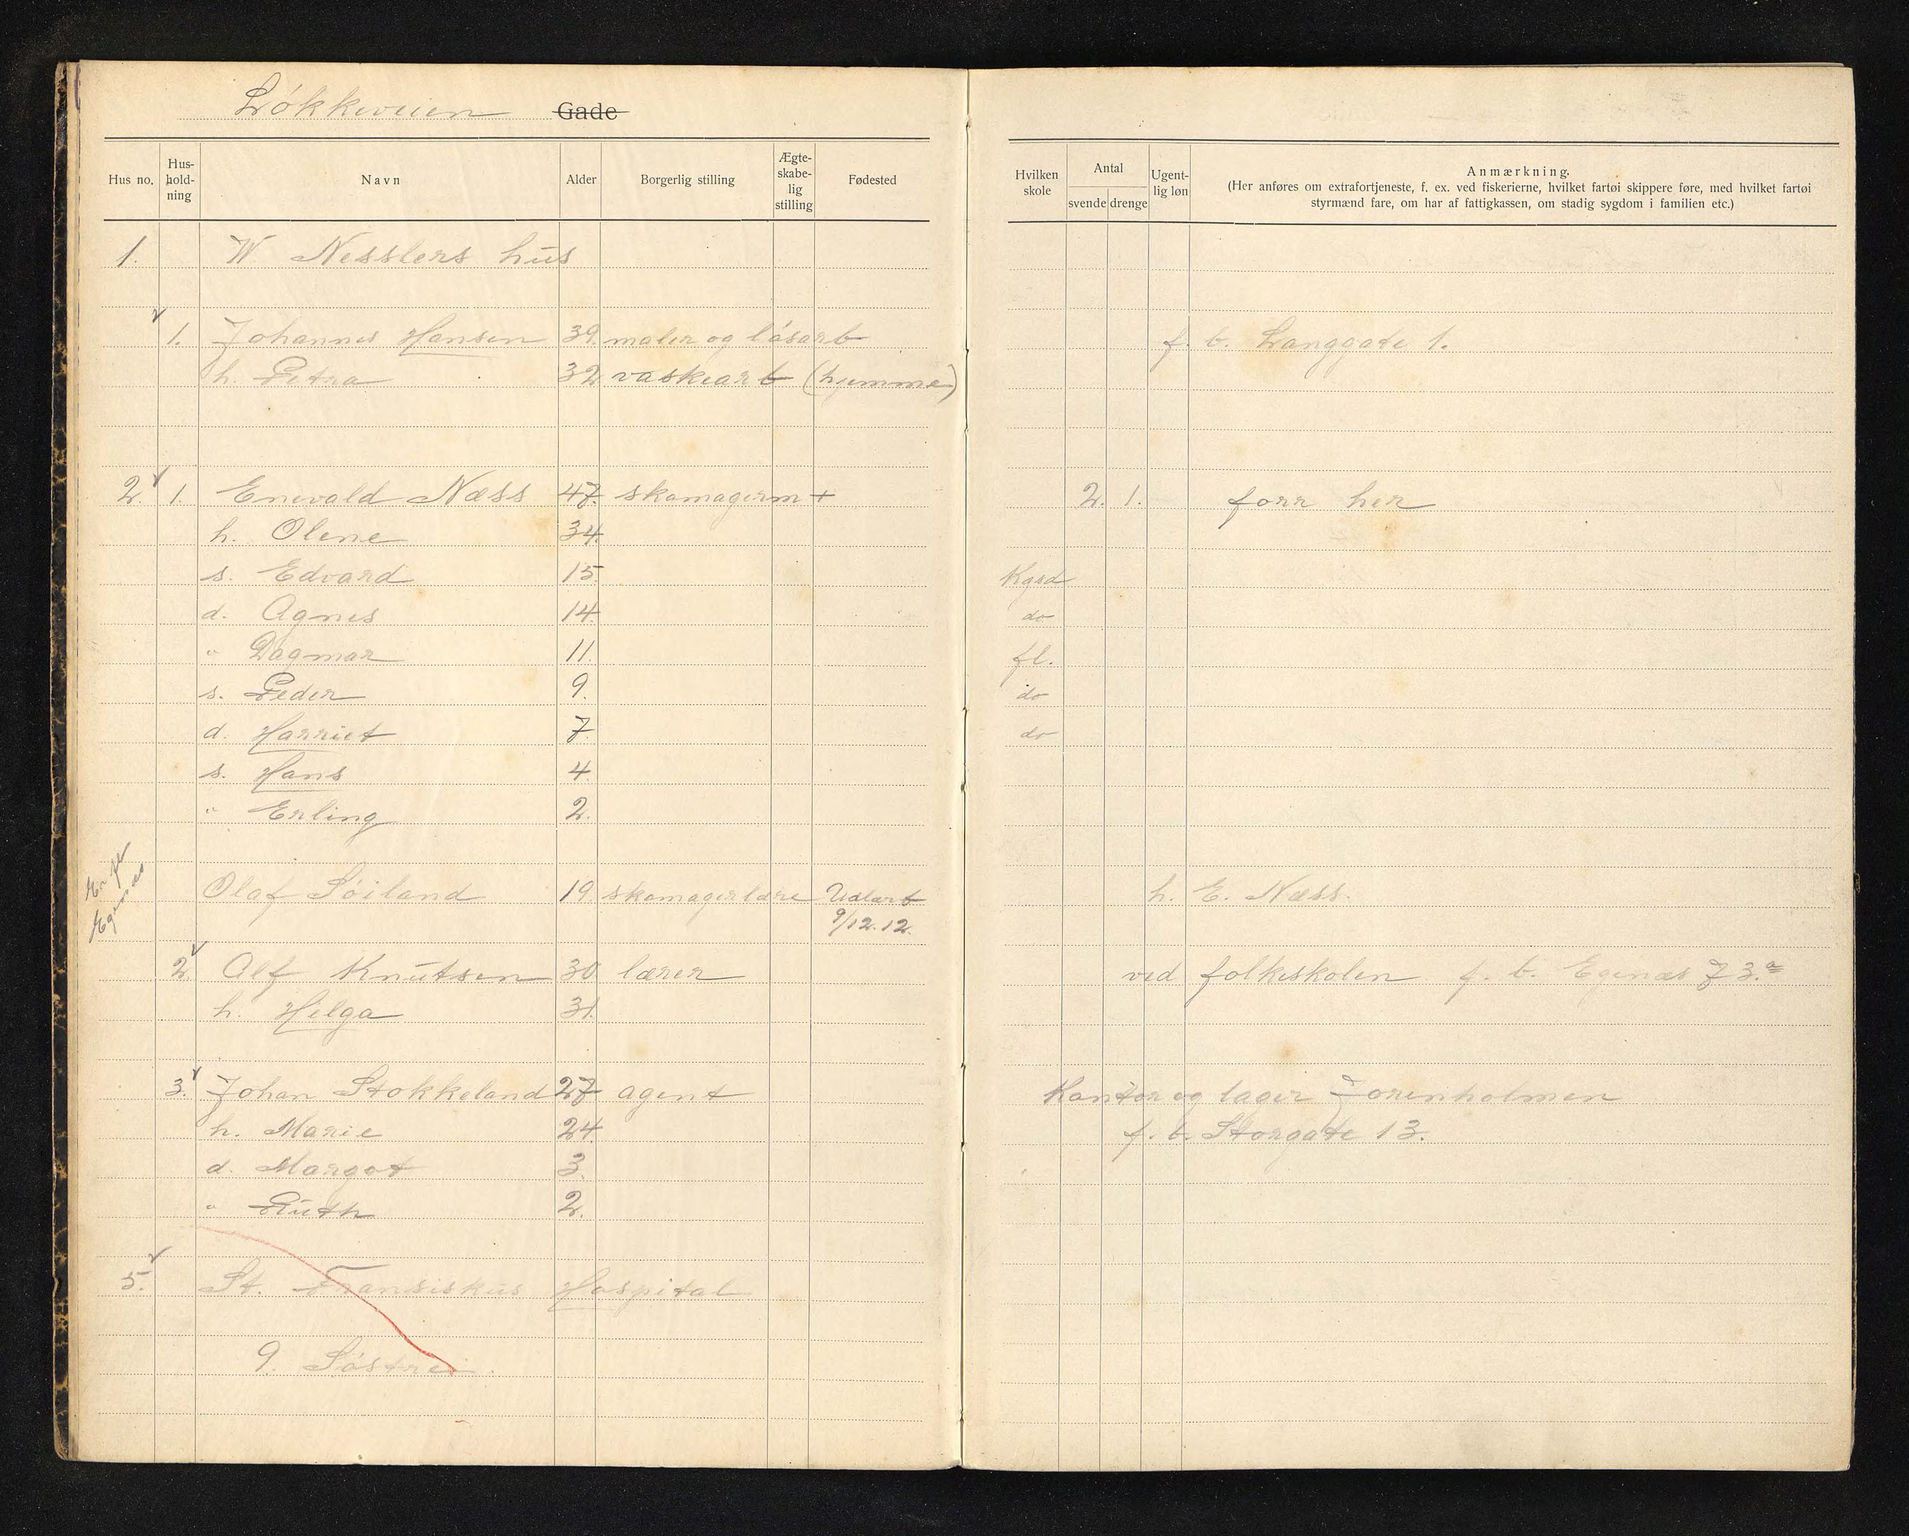 Løkkeveien Gade
Hus no. Hus-hold-ning Navn Alder Borgerlig stilling Ægte-skabe-lig stilling Fødested Hvilken skole Antal svende drenge Ugent-lig løn Anmærkning.
(Her anføres om extrafortjeneste, f. ex. ved fiskerierne, hvilket fartøi skippere føre, med hvilket fartøi
styrmænd fare, om har af fattigkassen, om stadig sygdom i familien etc.)
1. W. Nesslers hus
1. Johannes Hansen 39. maler og løsarb f. b. Langgate 1.
h. Petra 32 vaskearb (hjemme)
2. 1. Enevald Næss 47. skomagerm + 2. 1. forr her
h. Olene 34.
s. Edvard 15. Kgsd
d. Agnes 14. do
" Dagmar 11. fl.
s. Peder 9. do
d. Harriet 7 do
s. Hans 4.
" Erling 2.
Egenæs
Olaf Søiland 19. skomagerlære Udlært h. E. Næss.
9/12.12.
2. Alf Knutsen 30 lærer ved folkeskolen f. b. Egenæs 73.a
h. Helga 31.
3. Johan Stokkeland 27 agent Kontor og lager Jorenholmen
h. Marie 24 f. b. Storgate 13.
d. Margot 3.
" Ruth 2.
5. St. Fransiskus Hospital
9. Søstre